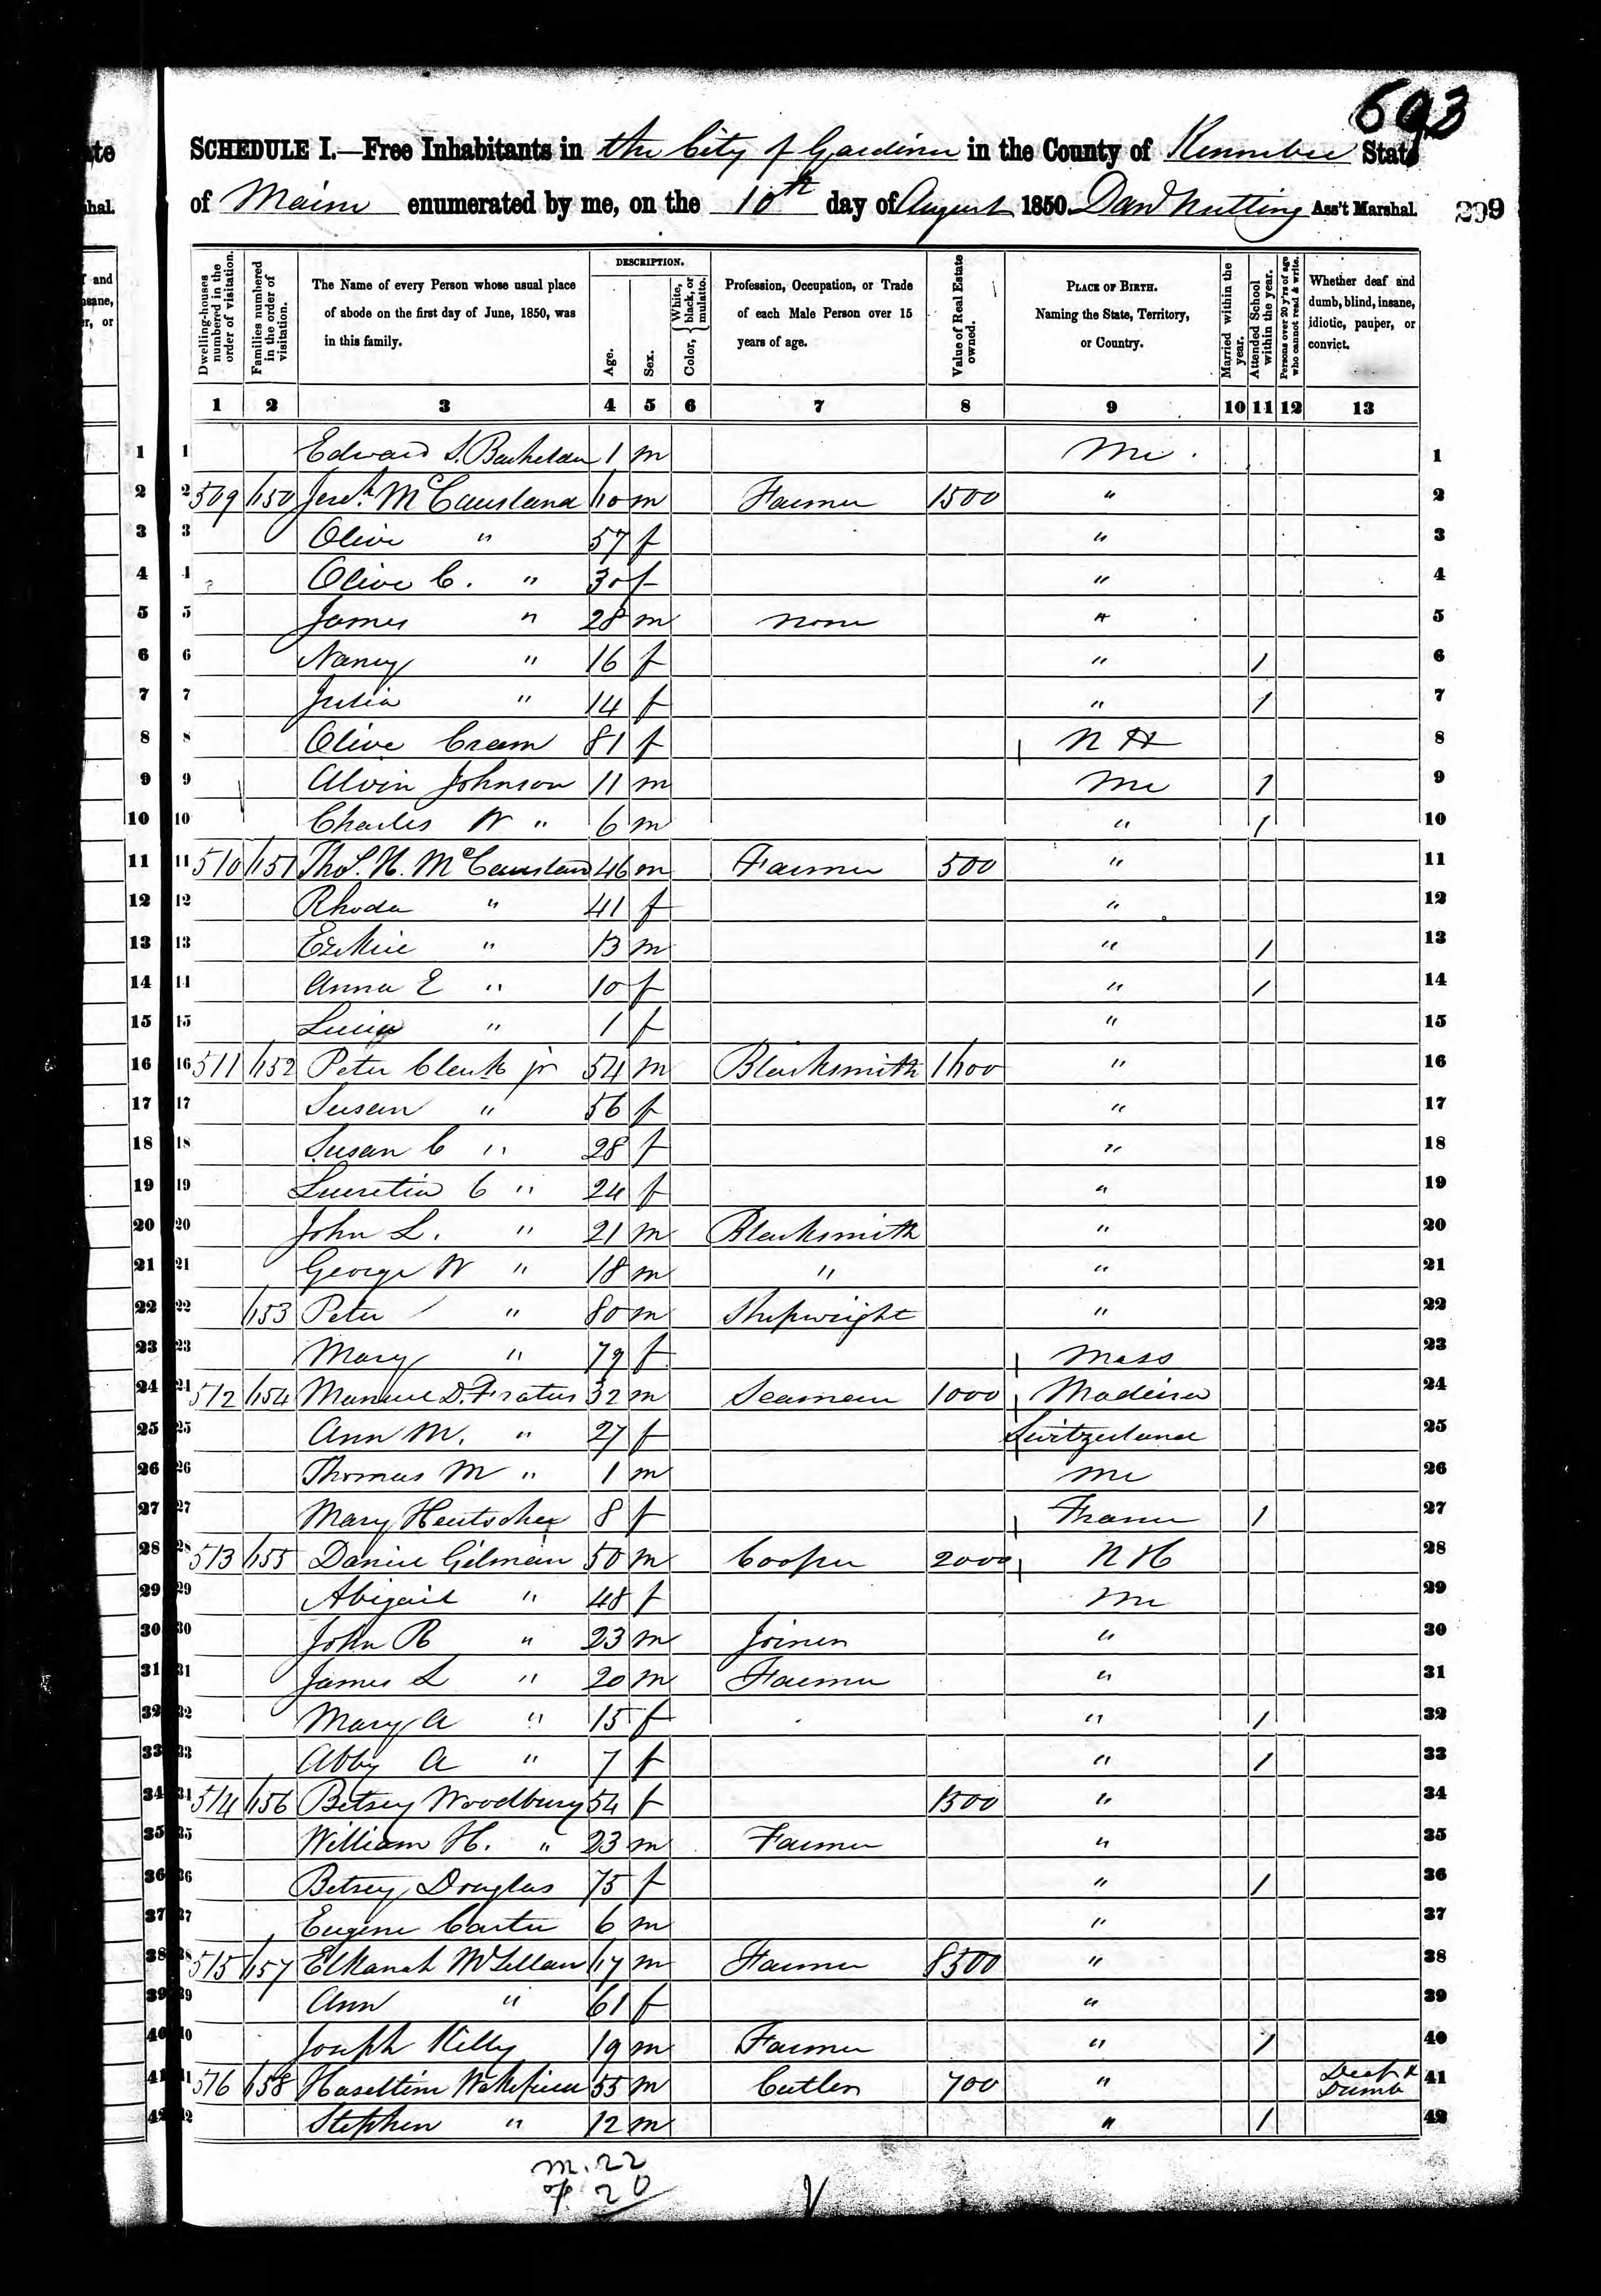 603
SCHEDULE I.—Free Inhabitants in the City of Gardiner in the County of Kennebec State
of Maine enumerated by me, on the 10th day of August 1850. Danl Nutting Ass't Marshal. 299
Dwelling-houses numbered in the order of visitation. Families numbered in the order of visitation. The Name of every Person whose usual place of abode on the first day of June, 1850, was in this family. DESCRIPTION. Age. Sex. Color, { White, black, or mulatto. Profession, Occupation, or Trade of each Male Person over 15 years of age. Value of Real Estate owned. PLACE OF BIRTH. Naming the State, Territory, or Country. Married within the year. Attended School within the year. Persons over 20 y'rs of age who cannot read & write. Whether deaf and dumb, blind, insane, idiotic, pauper, or convict.
1 2 3 4 5 6 7 8 9 10 11 12 13
1 Edward S. Bachelder 1 m Me. 1
2 509 1150 Jereh McCausland 60 m Farmer 1500 " 2
3 Olive " 57 f " 3
4 Olive C. " 30 f " 4
5 James " 28 m None " 5
6 Nancy " 16 f " 1 6
7 Julia " 14 f " 1 7
8 Olive Cram 81 f N H 8
9 Alvin Johnson 11 m Me 1 9
10 Charles W " 6 m " 1 10
11 510 1151 Thos. N. McCausland 46 m Farmer 500 " 11
12 Rhoda " 41 f " 12
13 Ezekiel " 13 m " 1 13
14 Anna E " 10 f " 1 14
15 " 1 f " 15
16 511 1152 Peter Clark jr 54 m Blacksmith 1600 " 16
17 Susan " 56 f " 17
18 Susan C " 28 f " 18
19 Lucretia C " 24 f " 19
20 John L. " 21 m Blacksmith " 20
21 George W " 18 m " " 21
22 1153 Peter " 80 m Shipwright " 22
23 Mary " 79 f Mass 23
24 512 1154 Manuel D. Fratus 32 m Seaman 1000 Madeira 24
25 Ann M. " 27 f Switzerland 25
26 Thomas M " 1 m Me 26
27 Mary 8 f France 1 27
28 513 1155 Daniel Gilman 50 m Cooper 2000 N H 28
29 Abigail " 48 f Me 29
30 John R " 23 m Joiner " 30
31 James L " 20 m Farmer " 31
32 Mary A " 15 f " 1 32
33 Abby A " 7 f " 1 33
34 514 1156 Betsey Woodbury 54 f 1500 " 34
35 William H. " 23 m Farmer " 35
36 Betsey Douglas 75 f " 1 36
37 Eugene Carter 6 m " 37
38 515 1157 Elkanah McLellan 67 m Farmer 8500 " 38
39 Ann " 61 f " 39
40 Joseph Kelly 19 m Farmer " 1 40
41 516 1158 Haseltine Wakefield 55 m Cutler 700 " Deaf & Dumb 41
42 Stephen " 12 m " 1 42
m. 22
f 20